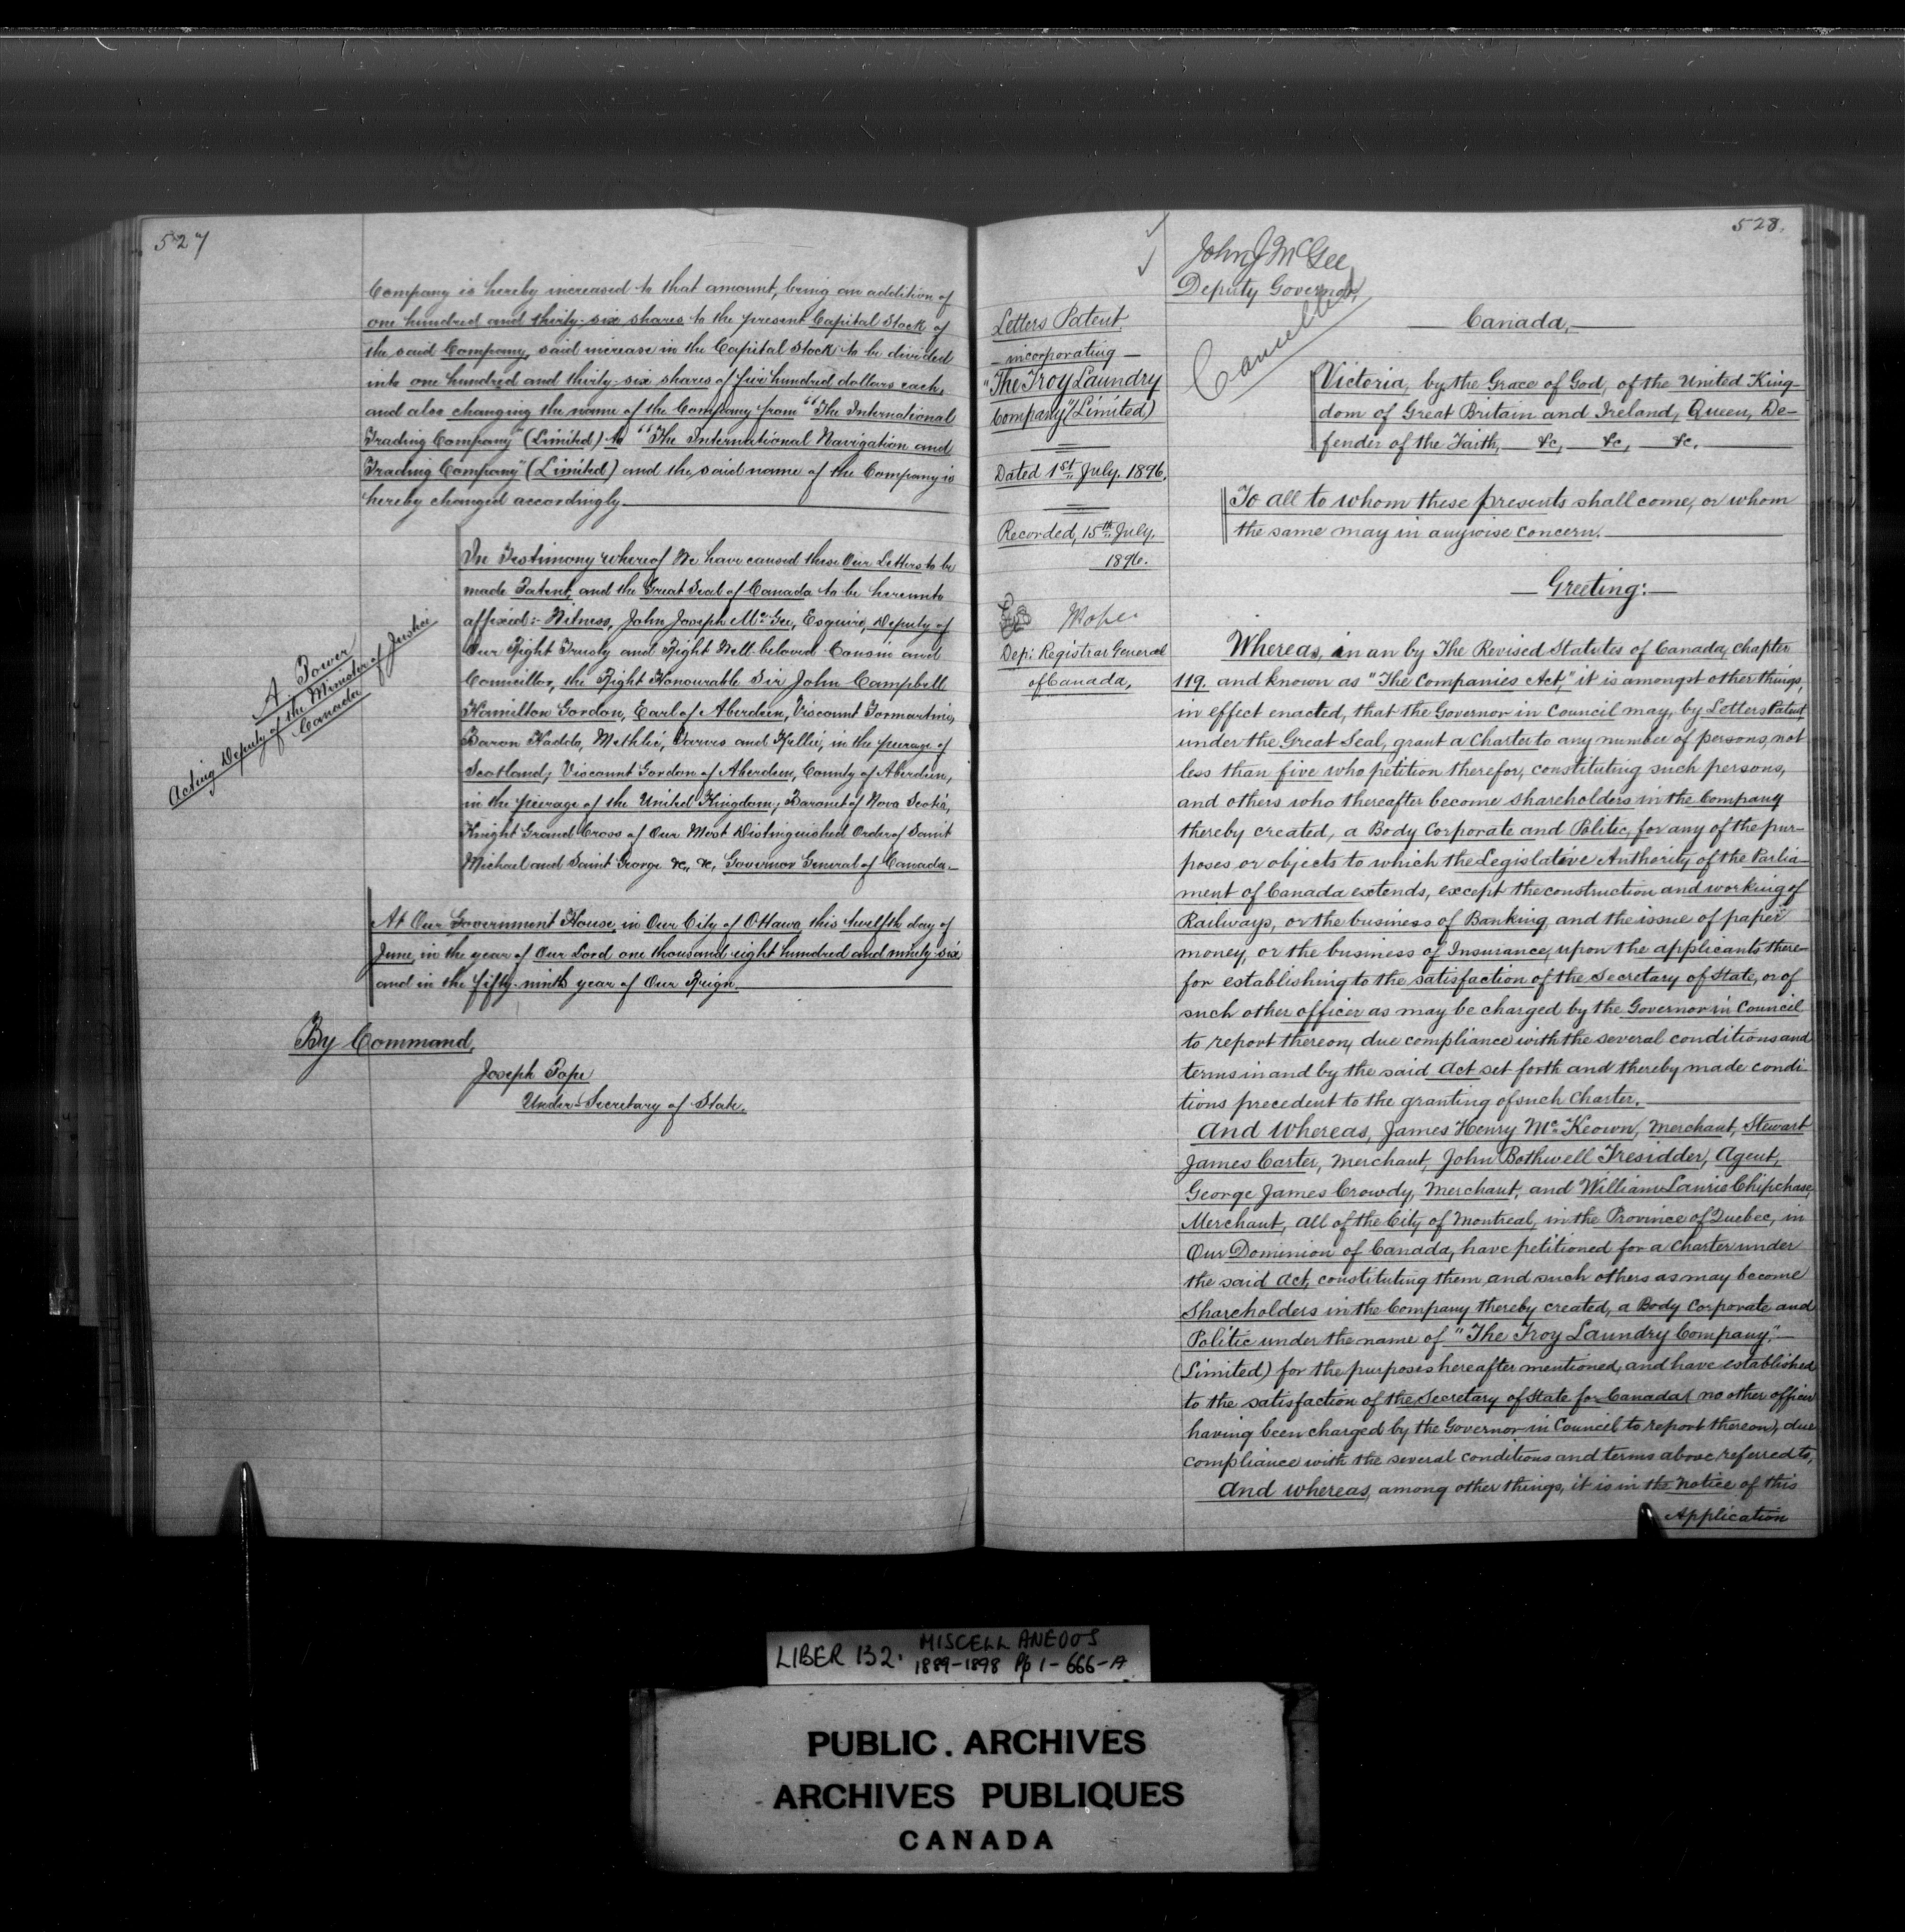 527
Company is hereby increased to that amount, being an addition of
one hundred and thirty-six shares to the present Capital Stock of
the said Company, said increase in the Capital Stock to be divided
into one hundred and thirty-six shares of five hundred dollars each,
and also changing the name of the Company from "The International
Trading Company" (Limited) to "The International Navigation and
Trading Company" (Limited) and the said name of the Company is
hereby changed accordingly.
In Testimony whereof We have caused these Our Letters to be
made Patent, and the Great Seal of Canada to be hereunto
affixed:- Witness, John Joseph McGee, Esquire, Deputy of
Our Right Trusty and Right Well-beloved Cousin and
Councillor, the Right Honourable Sir John Campbell
Hamilton Gordon, Earl of Aberdeen, Viscount Formartine,
Baron Haddo, Methlic, Tarves and Kellie, in the peerage of
Scotland; Viscount Gordon of Aberdeen, County of Aberdeen,
in the peerage of the United Kingdom; Baronet of Nova Scotia,
Knight Grand Cross of Our Most Distinguished Order of Saint
Michael and Saint George &c, &c, Governor General of Canada.
A. Power
Acting Deputy of the Minister of Justice
Canada
At Our Government House, in Our City of Ottawa this twelfth day of
June, in the year of Our Lord one thousand eight hundred and ninety-six
and in the fifty-ninth year of Our Reign.
By Command,
Joseph Pope
Under-Secretary of State.
528.
John J McGee
Deputy Governor
Cancelled
Letters Patent
— incorporating —
"The Troy Laundry
Company" (Limited)
Dated 1st July. 1896.
Recorded, 15th July.
1896.
Dep: Registrar General
of Canada,
— Canada, —
Victoria, by the Grace of God, of the United King-
dom of Great Britain and Ireland, Queen, De-
fender of the Faith, — &c, — &c, — &c.
To all to whom these presents shall come, or whom
the same may in anywise concern.
— Greeting: —
Whereas, in an by The Revised Statutes of Canada, chapter
119. and known as "The Companies Act," it is amongst other things,
in effect enacted, that the Governor in Council may, by Letters Patent,
under the Great Seal, grant a Charter to any number of persons, not
less than five who petition therefor, constituting such persons,
and others who thereafter become shareholders in the Company
thereby created, a Body Corporate and Politic, for any of the pur-
poses or objects to which the Legislative Authority of the Parlia-
ment of Canada extends, except the construction and working of
Railways, or the business of Banking, and the issue of paper
money, or the business of Insurance, upon the applicants there-
for establishing to the satisfaction of the Secretary of State, or of
such other officer as may be charged by the Governor in Council
to report thereon, due compliance with the several conditions and
terms in and by the said Act set forth and thereby made condi-
tions precedent to the granting of such Charter.
And Whereas, James Henry McKeown, Merchant, Stewart
James Carter, Merchant, John Bothwell Tresidder, Agent,
George James Crowdy, Merchant, and William Laurie Chipchase,
Merchant, all of the City of Montreal, in the Province of Quebec, in
Our Dominion of Canada, have petitioned for a Charter under
the said Act, constituting them, and such others as may become
Shareholders in the Company thereby created, a Body Corporate and
Politic under the name of "The Troy Laundry Company," —
(Limited) for the purposes hereafter mentioned, and have established
to the satisfaction of the Secretary of State for Canada (no other officer
having been charged by the Governor in Council to report thereon), due
compliance with the several conditions and terms above referred to,
And whereas, among other things, it is in the Notice of this
Application
LIBER 132. MISCELLANEOUS
1889-1898 Pp 1-666-A
PUBLIC. ARCHIVES
ARCHIVES PUBLIQUES
CANADA